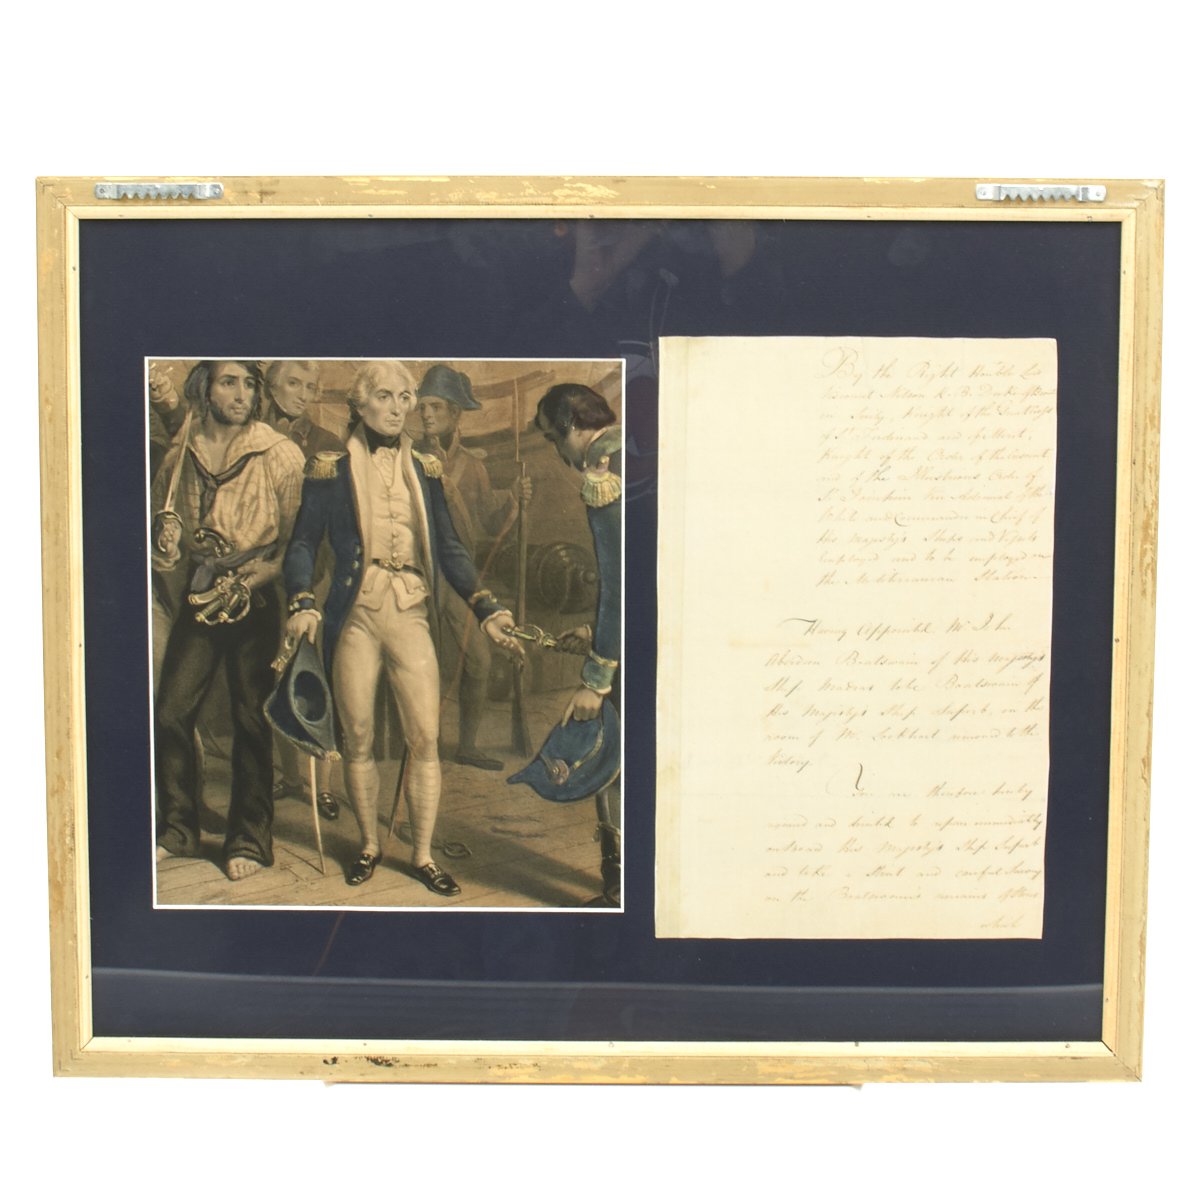 By the Right Hon'ble Lord
Viscount Nelson K. B. Duke of Bronte
in Sicily, Knight of the Great Cross
of St Ferdinand and of Merit,
Knight of the Order of the Crescent
and of the Illustrious Order of
St Joachim Vice Admiral of the
White and Commander in Chief of
His Majesty's Ships and Vessels
employed and to be employed on
the Mediterranean Station
Having appointed Mr
Boatswain of His Majesty's
Ship Madras to be Boatswain of
His Majesty's Ship Superb, in the
room of Mr Lockhart removed to the
Victory
You are therefore hereby
required and directed to repair immediately
on board His Majesty's Ship Superb
and take a Strict and careful Survey
on the Boatswain's remains of Stores
which